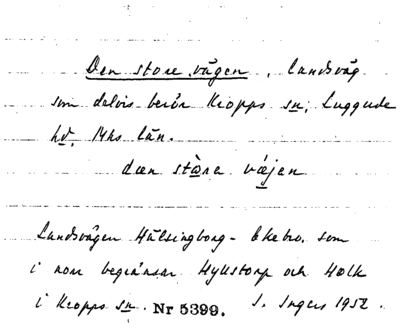 Den store vägen, landsväg
som delvis berör Kropps sn, Luggude
hd, Mhs län.
dæn stòra vǽjen
Landsvägen Hälsingborg - Ekebro, som
i norr begränsar Hyllstorp och Holk
i Kropps sn. Nr 5399. S. Ingers 1952.